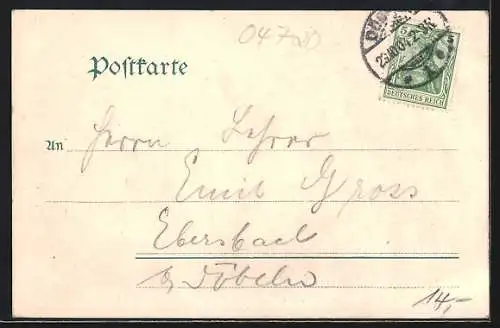 04720
Postkarte
5 5
DEUTSCHES REICH
An
Herrn Lehrer
Emil Gross
Ebersbach
b/ Döbeln
14,-